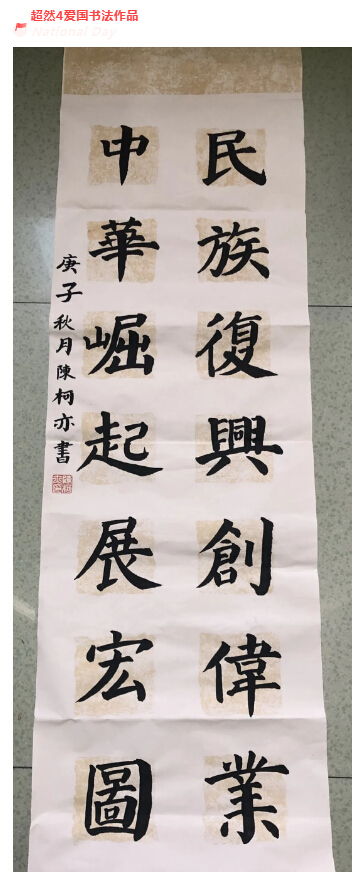 超然4爱国书法作品
National Day
民族復興創偉業
中華崛起展宏圖
庚子秋月陳柯亦書